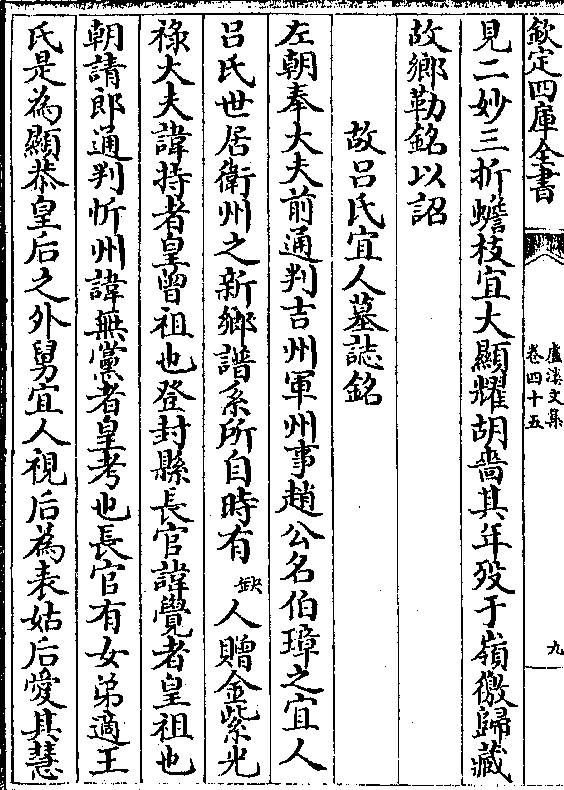 欽定四庫全書
盧溪文集
卷四十五
九
見二妙三折蟾枝宜大顯耀胡嗇其年歿于嶺徼歸藏
故鄉勒銘以詔
故呂氏宜人墓誌銘
左朝奉大夫前通判吉州軍州事趙公名伯璋之宜人
呂氏世居衛州之新鄉譜系所自時有缺人贈金紫光
祿大夫諱持者皇曾祖也登封縣長官諱覺者皇祖也
朝請郎通判忻州諱無黨者皇考也長官有女弟適王
氏是為顯恭皇后之外舅宜人視后為表姑后愛其慧